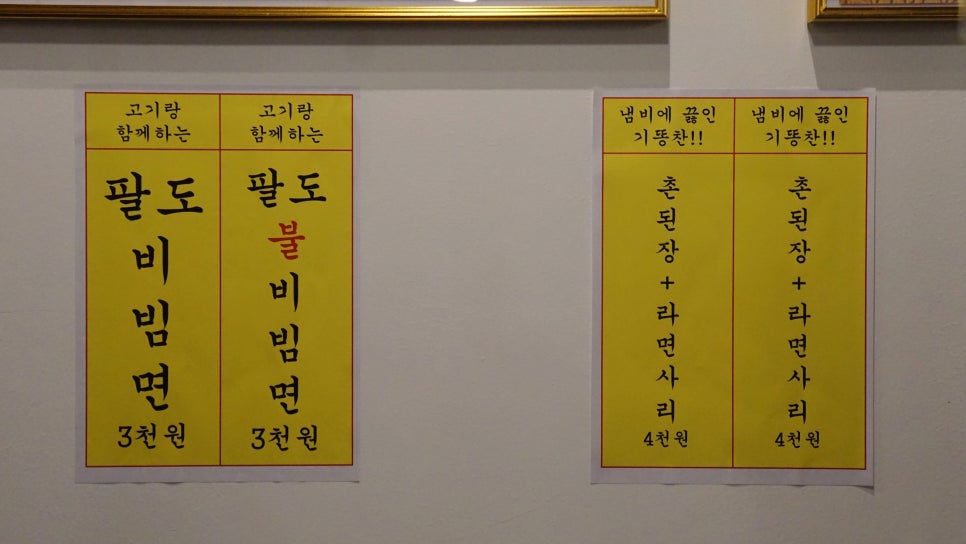 고기랑
함께하는
팔도
비
빔
면
3천원
고기랑
함께하는
팔도
불
비
빔
면
3천원
냄비에 끓인
기똥찬!!
촌
된
장
+
라
면
사
리
4천원
냄비에 끓인
기똥찬!!
촌
된
장
+
라
면
사
리
4천원